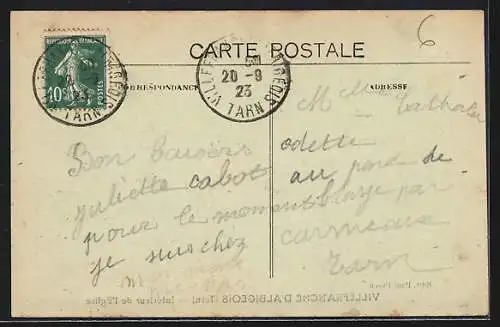 CARTE POSTALE
CORRESPONDANCE
ADRESSE
6
REPUBLIQUE FRANÇAISE
10c POSTES
VILLEFRANCHE D'ALBIGEOIS
20-9
23
TARN
Bon baisers
juliette cabot
pour le moment
je suis chez
M
odette
au pont de
Blaye par
carmeaux
Tarn
VILLEFRANCHE D'ALBIGEOIS (Tarn) - Intérieur de l'Eglise